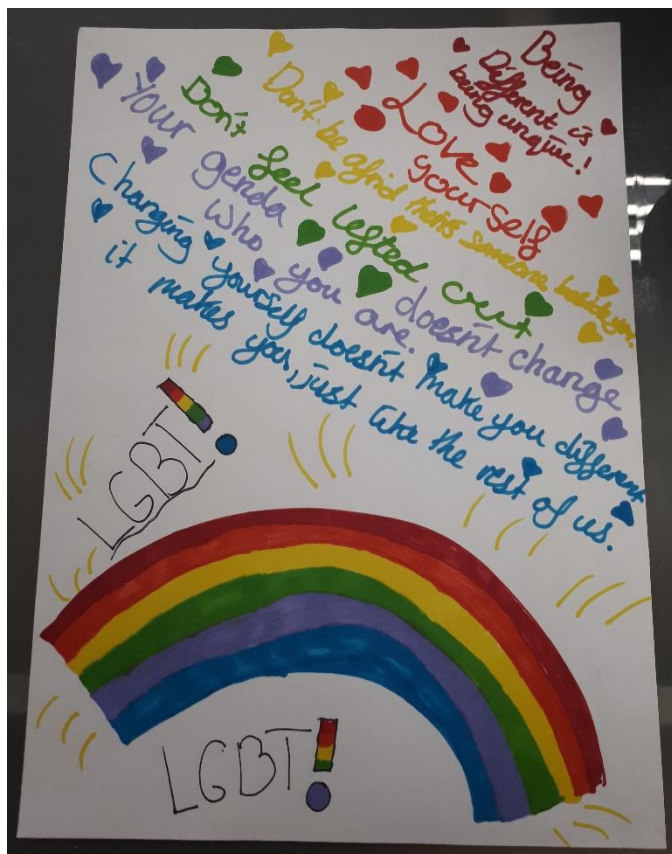 Being
Different is
being unqiue!
Love
yourself
Don't be afrid theirs someone beside you.
Don't feel lefted out
Your genda doesn't change
who you are.
Changing yourself doesn't make you different
it makes you, just like the rest of us.
LGBT!
LGBT!